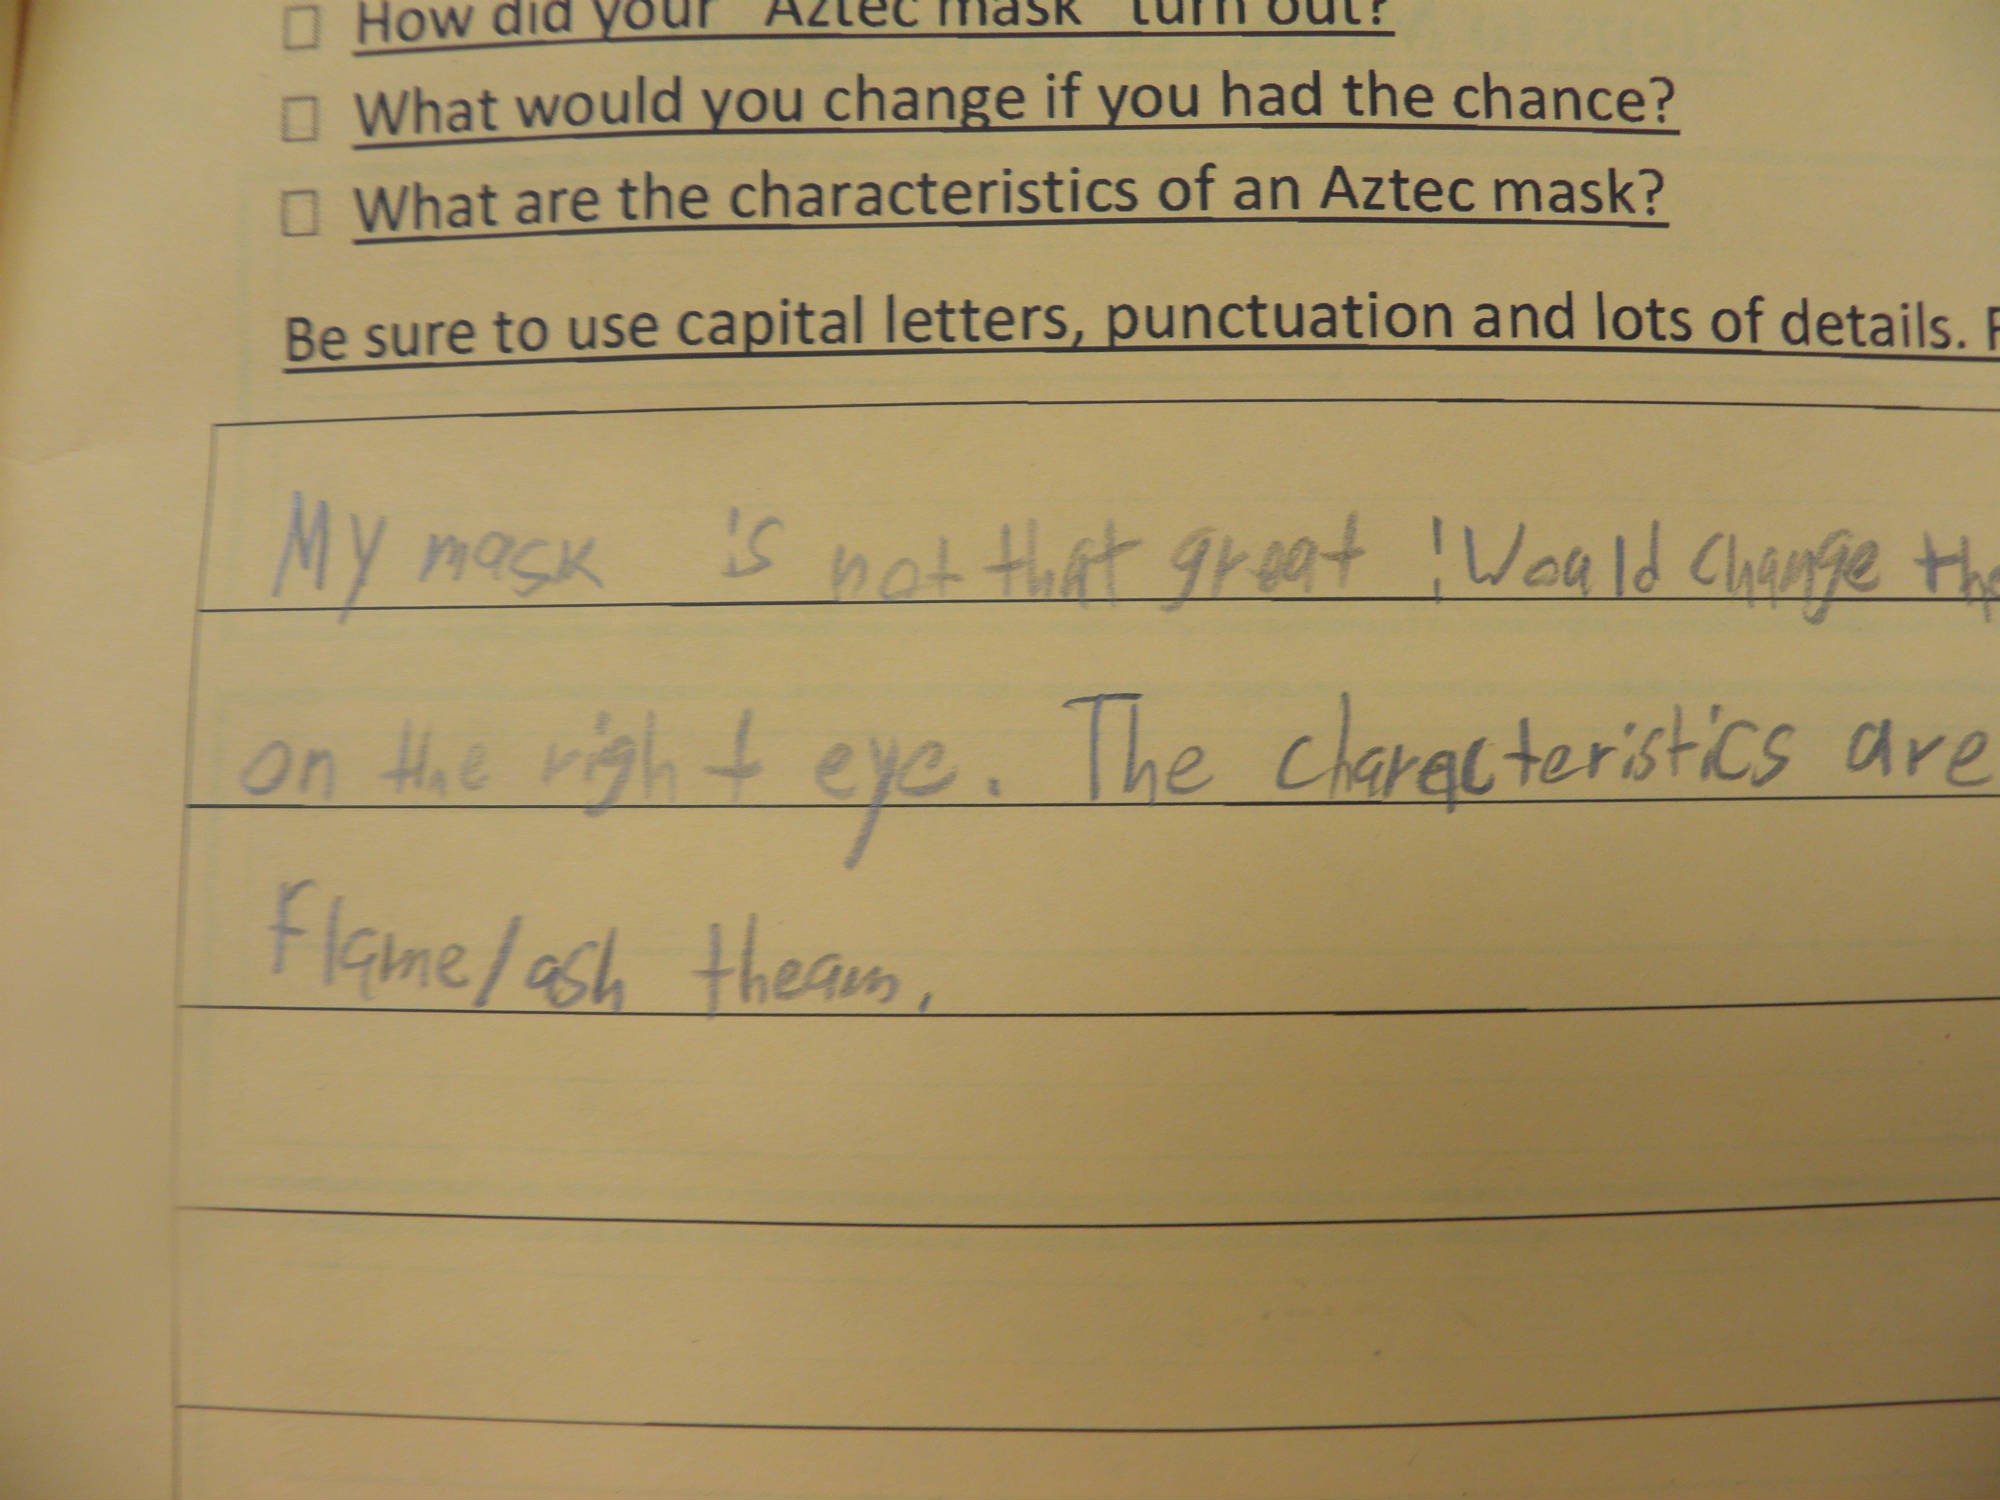 ☐ How did your "Aztec mask" turn out?
☐ What would you change if you had the chance?
☐ What are the characteristics of an Aztec mask?
Be sure to use capital letters, punctuation and lots of details.
My mask is not that great ! Would change the
on the right eye. The characteristics are
Flame/ash theam.